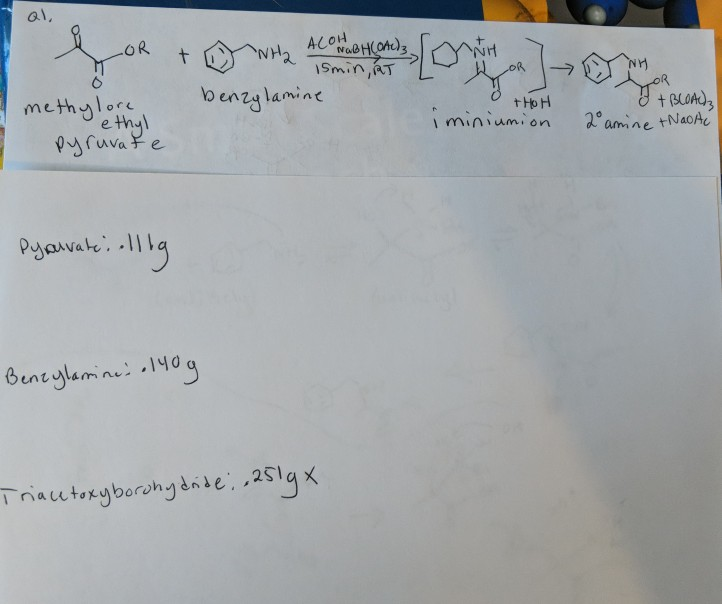 Q1.
O
OR
O
methyl or
ethyl
pyruvate
+
NH2
benzylamine
ACOH
NaBH(OAc)3
15min, RT
+
NH
OR
O
+HOH
iminium ion
NH
OR
O
+B(OAc)3
2° amine +NaOAc
Pyruvate: .111g
Benzylamine: .140g
Triacetoxyborohydride: .251g x